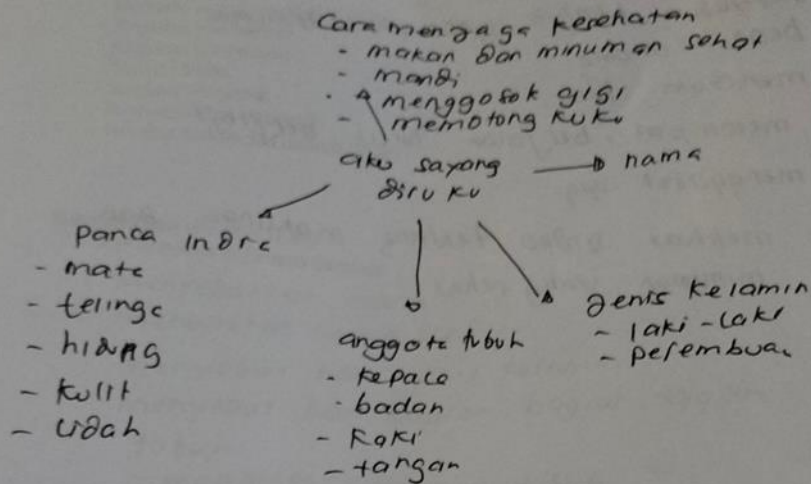 Cara menjaga kesehatan
- makan dan minuman sehat
- mandi
- menggosok gigi
- memotong kuku
aku sayang
diruku
nama
panca indra
- mata
- telinga
- hidung
- kulit
- lidah
anggota tubuh
- kepala
- badan
- kaki
- tangan
Jenis kelamin
- laki-laki
- perembuan